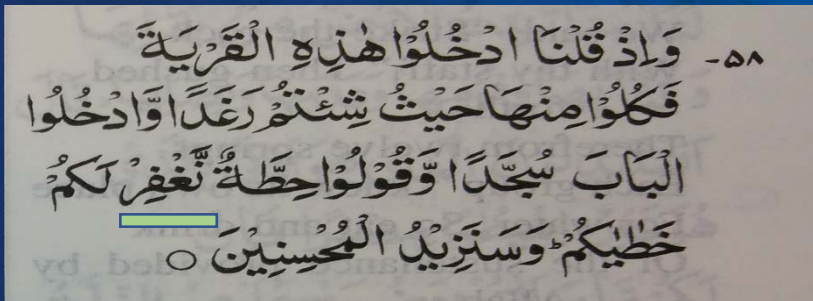 ٥٨- وَاِذْ قُلْنَا ادْخُلُوْا هٰذِهِ الْقَرْيَةَ
فَكُلُوْا مِنْهَا حَيْثُ شِئْتُمْ رَغَدًا وَّادْخُلُوا
الْبَابَ سُجَّدًا وَّقُوْلُوْا حِطَّةٌ نَّغْفِرْ لَكُمْ
خَطٰيٰكُمْ ؕ وَسَنَزِيْدُ الْمُحْسِنِيْنَ ○